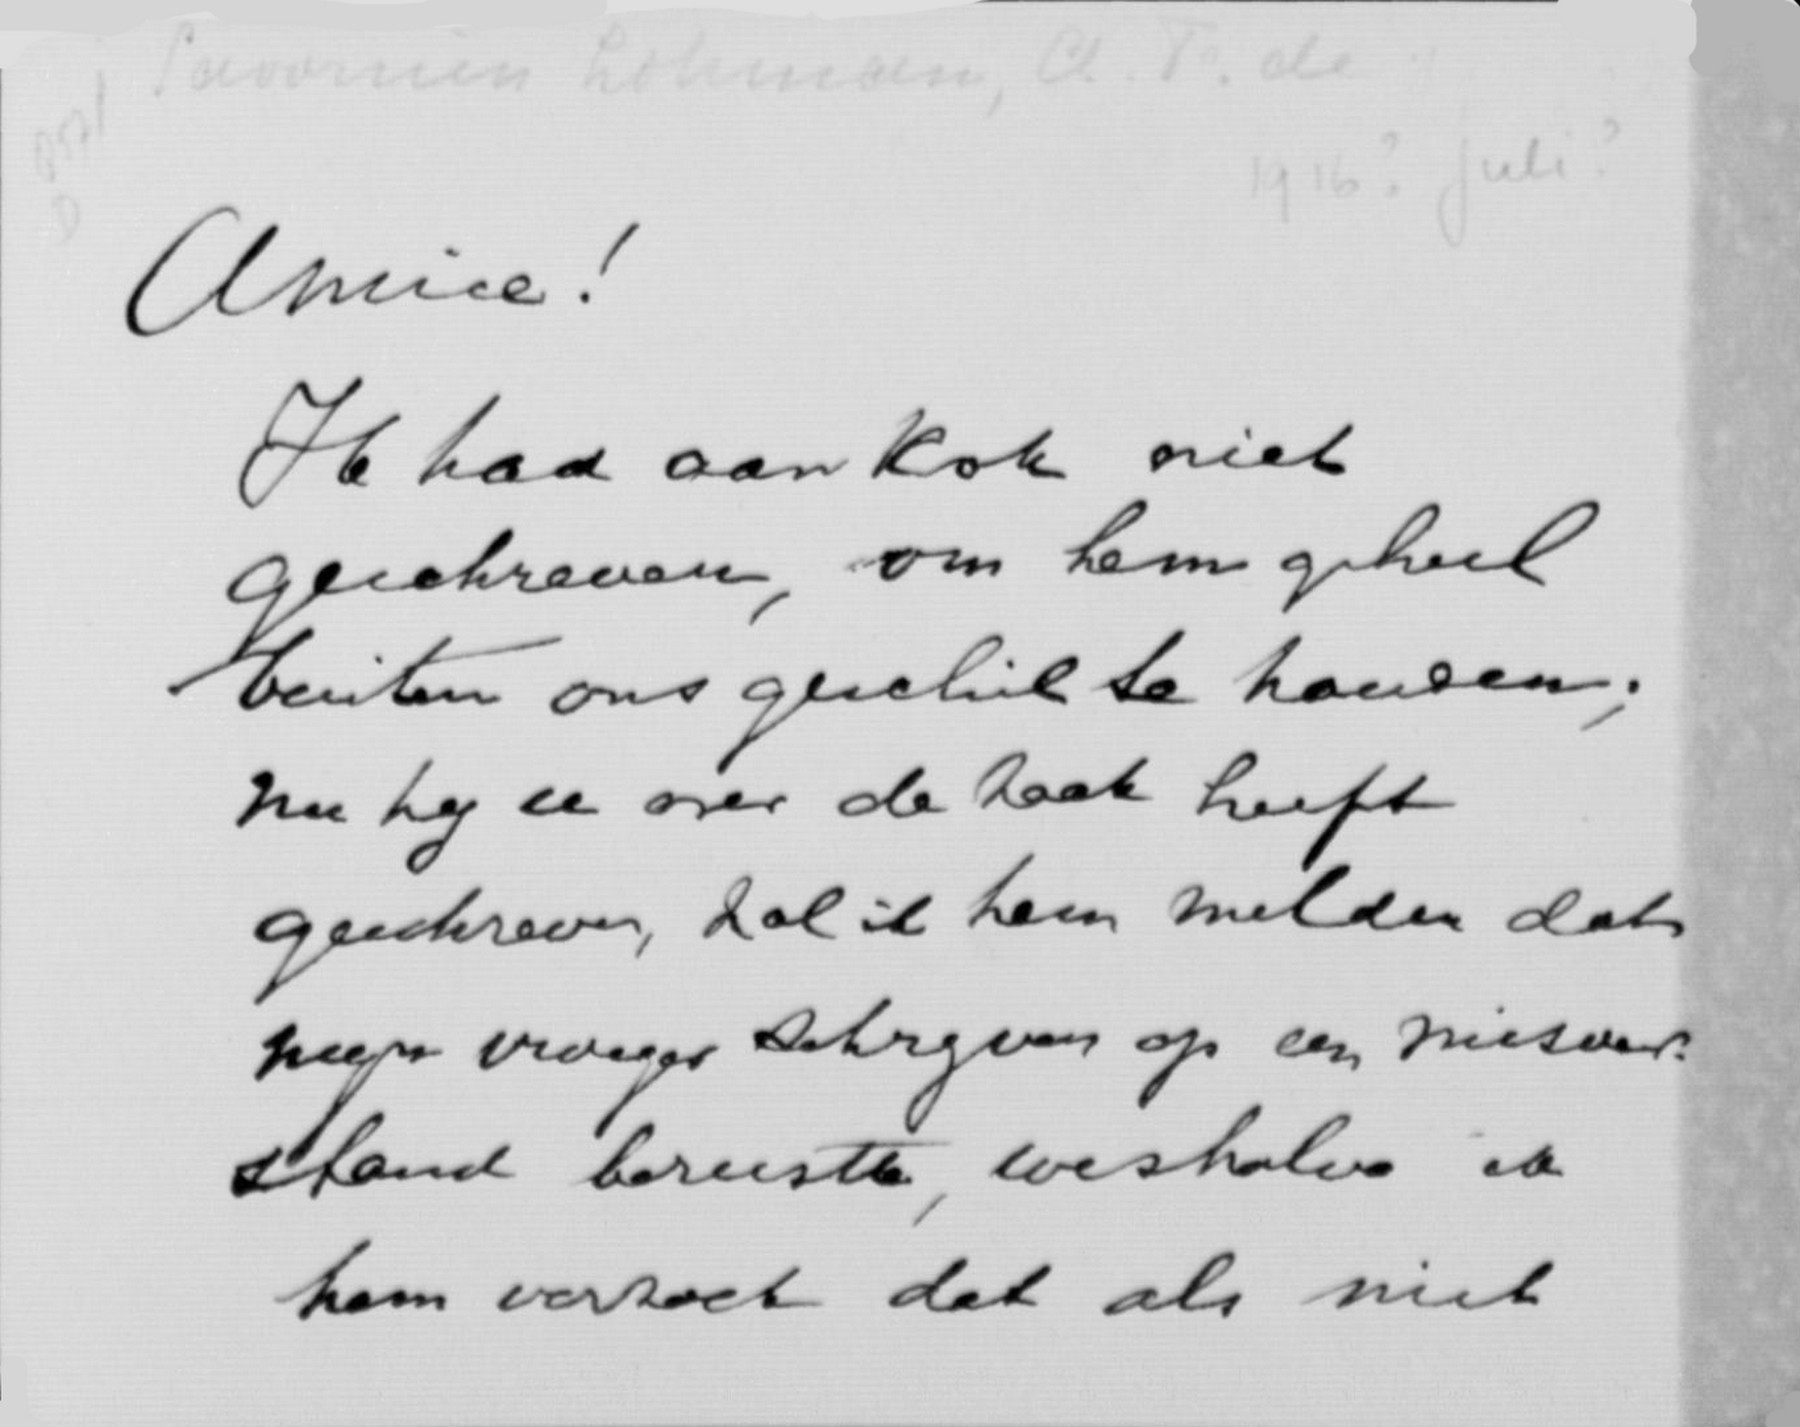 Savornin Lohman, A. F. de
1916? Juli?
Amice!
Ik had aan Kok niet
geschreven, om hem geheel
buiten ons geschil te houden;
nu hij u over de zaak heeft
geschreven, zal ik hem melden dat
mijn vroeger schrijven op een misver-
stand berustte, weshalve ik
hem verzoek dat als niet